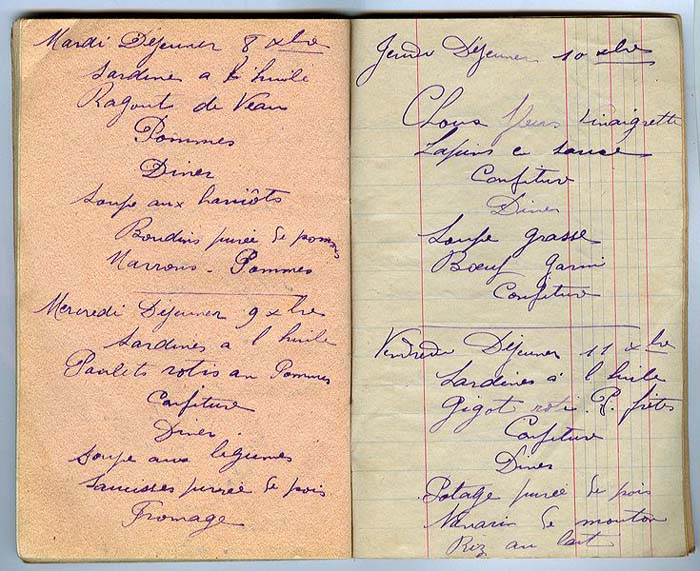 Mardi Déjeuner 8 xbre
Sardines a l'huile
Ragouts de Veau
Pommes
Diner
Soupe aux haricôts
Boudins purée de pommes
Marrons - Pommes
Mercredi Déjeuner 9 xbre
Sardines a l huile
Poulets rotis au Pommes
Confiture
Diner
Soupe aux légumes
Saucisses purrée de pois
Fromage
Jeudi Déjeuner 10 xbre
Choux fleurs Vinaigrette
Lapins e sauce
Confiture
Diner
Soupe grasse
Bœuf Garni
Confiture
Vendredi Déjeuner 11 xbre
Sardines à l huile
Gigot roti. P. frites
Confiture
Diner
Potage purée de pois
Navarin de mouton
Riz au lait